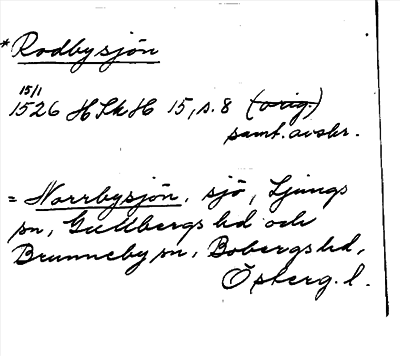 *Rodbysjön
15/1
1526 HSkH 15, s. 8 (orig.)
samt. avskr.
= Norrbysjön, sjö, Ljungs
sn, Gullbergs hd och
Brunneby sn, Bobergs hd,
Österg. l.